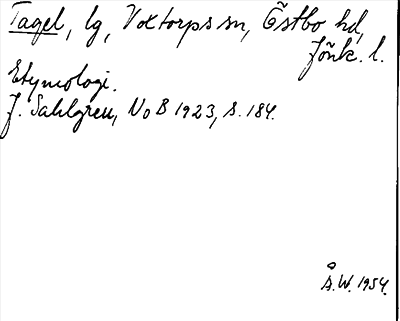 Tagel, lg, Voxtorps sn, Östbo hd,
Jönk. l.
Etymologi.
J. Sahlgren, NoB 1923, s. 184.
Å.W. 1954.